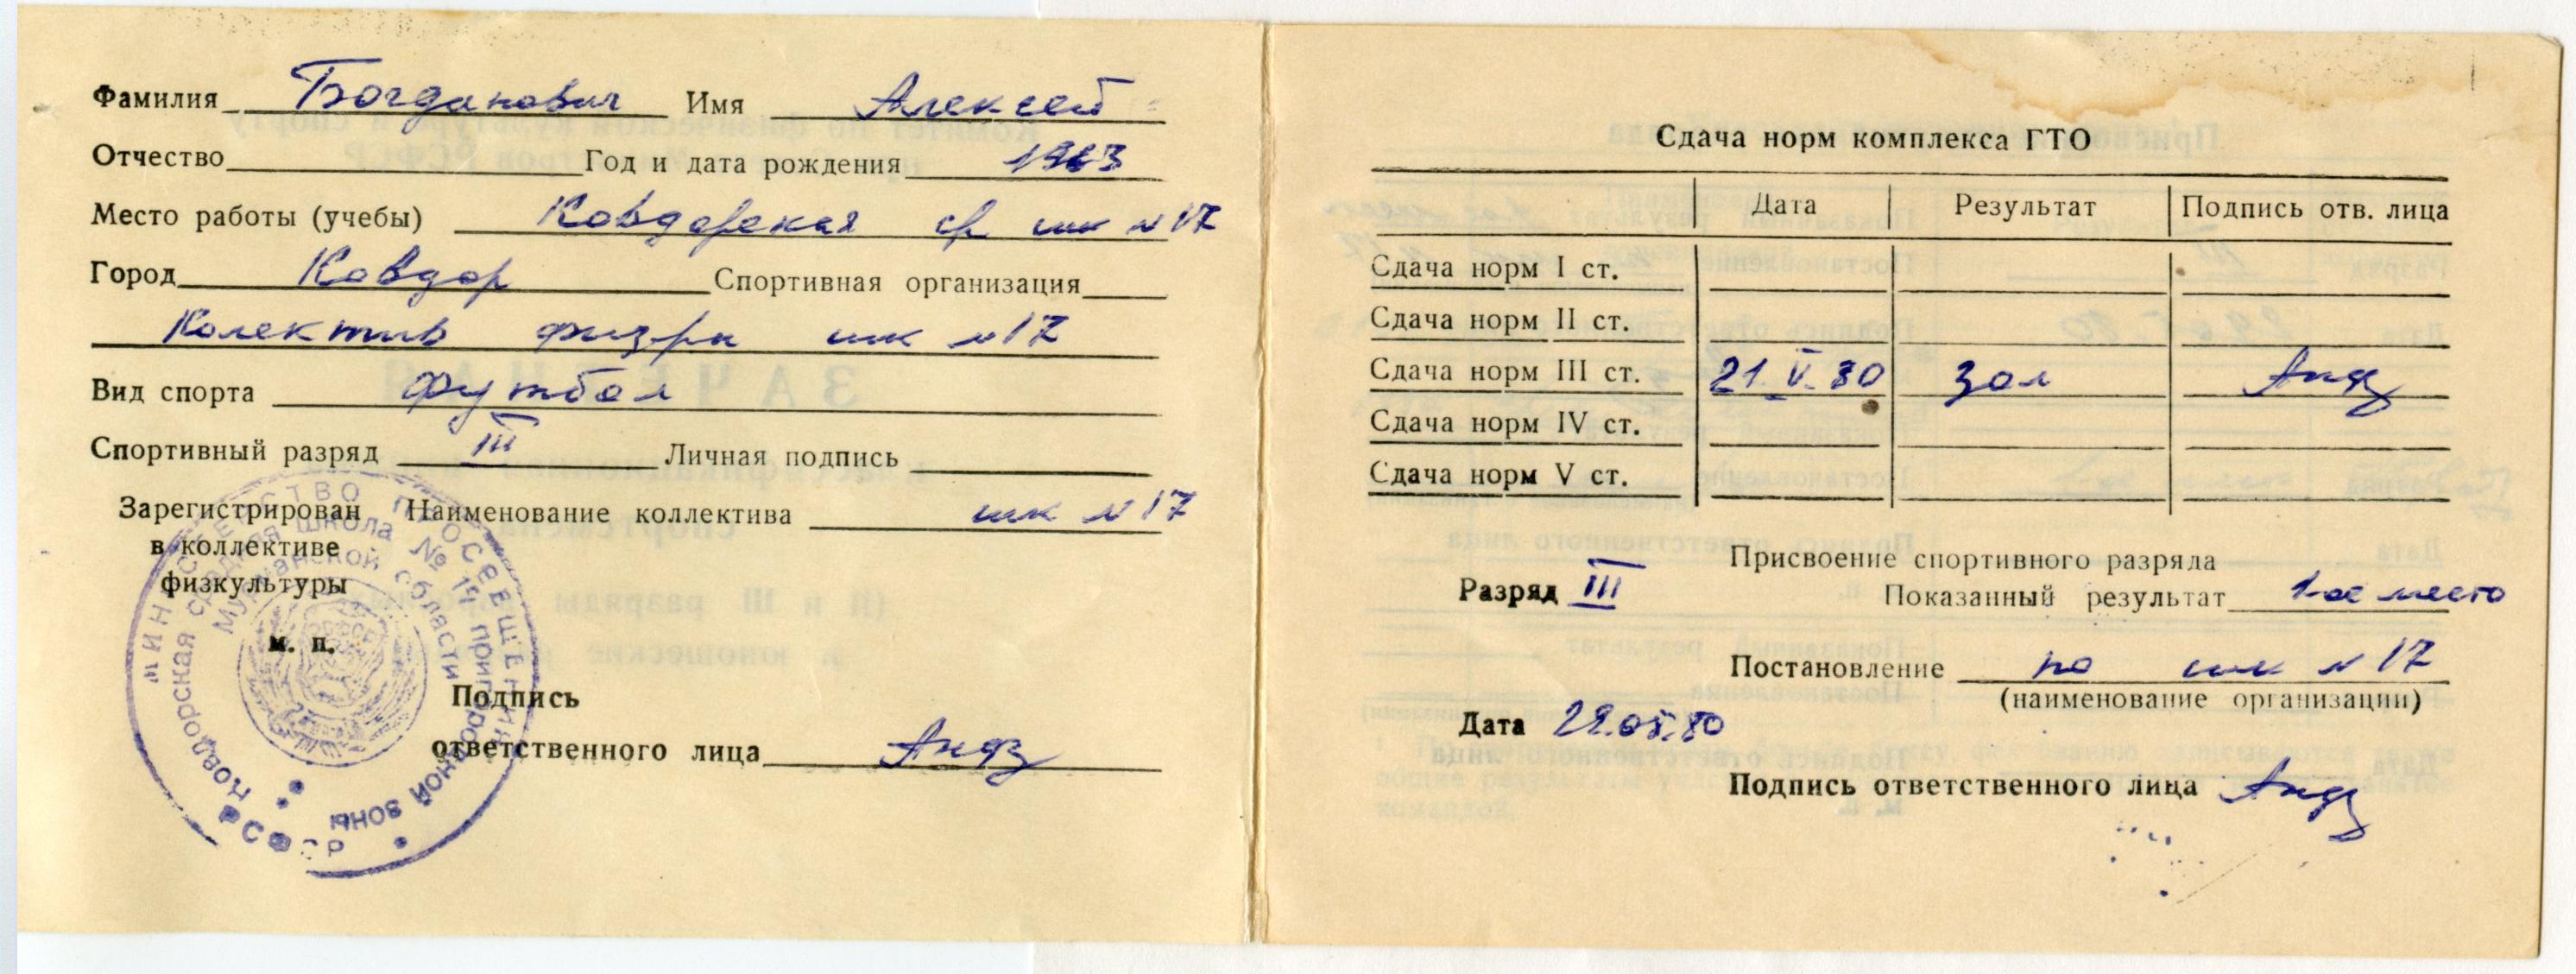 Фамилия Богданович Имя Алексей
Отчество Год и дата рождения 1963
Место работы (учебы) Ковдорская ср шк №17
Город Ковдор Спортивная организация
Колектив физры шк №17
Вид спорта футбол
Спортивный разряд III Личная подпись
Зарегистрирован Наименование коллектива шк №17
в коллективе
физкультуры
м. п.
Подпись
ответственного лица
ПРОСВЕЩЕНИЯ РСФСР
средняя школа №
Мурманской области
Сдача норм комплекса ГТО
Дата Результат Подпись отв. лица
Сдача норм I ст.
Сдача норм II ст.
Сдача норм III ст. 21.V.80 зол
Сдача норм IV ст.
Сдача норм V ст.
Присвоение спортивного разряла
Разряд III Показанный результат 1-ое место
Постановление по шк №17
(наименование организации)
Дата 29.05.80
Подпись ответственного лица